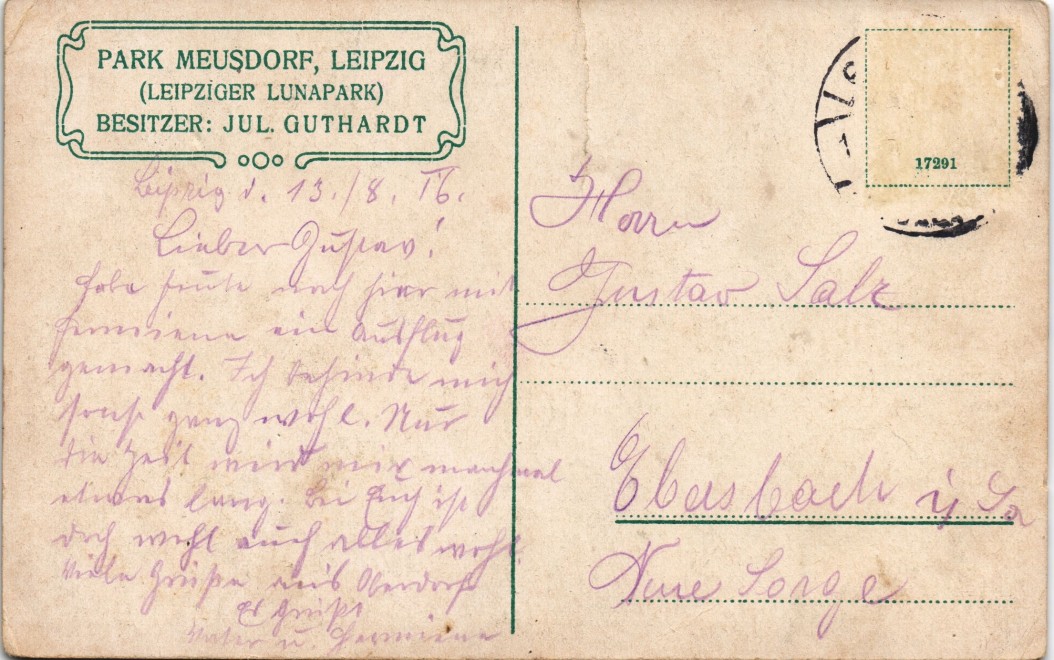 PARK MEUSDORF, LEIPZIG
(LEIPZIGER LUNAPARK)
BESITZER: JUL. GUTHARDT
17291
Leipzig d. 13./8. 16.
Lieber Gustav!
Habe heute nach hier mit
Hermiene ein Ausflug
gemacht. Ich befinde mich
sonst ganz wohl. Nur
die Zeit wird mir manchmal
etwas lang. Bei Euch ist
doch wohl auch alles wohl.
Viele Grüße aus Oberdorf
Es Grüßt
Vater u. Hermiene
Herrn
Gustav Salz
Ebersbach i/ Sa
Neue Sorge